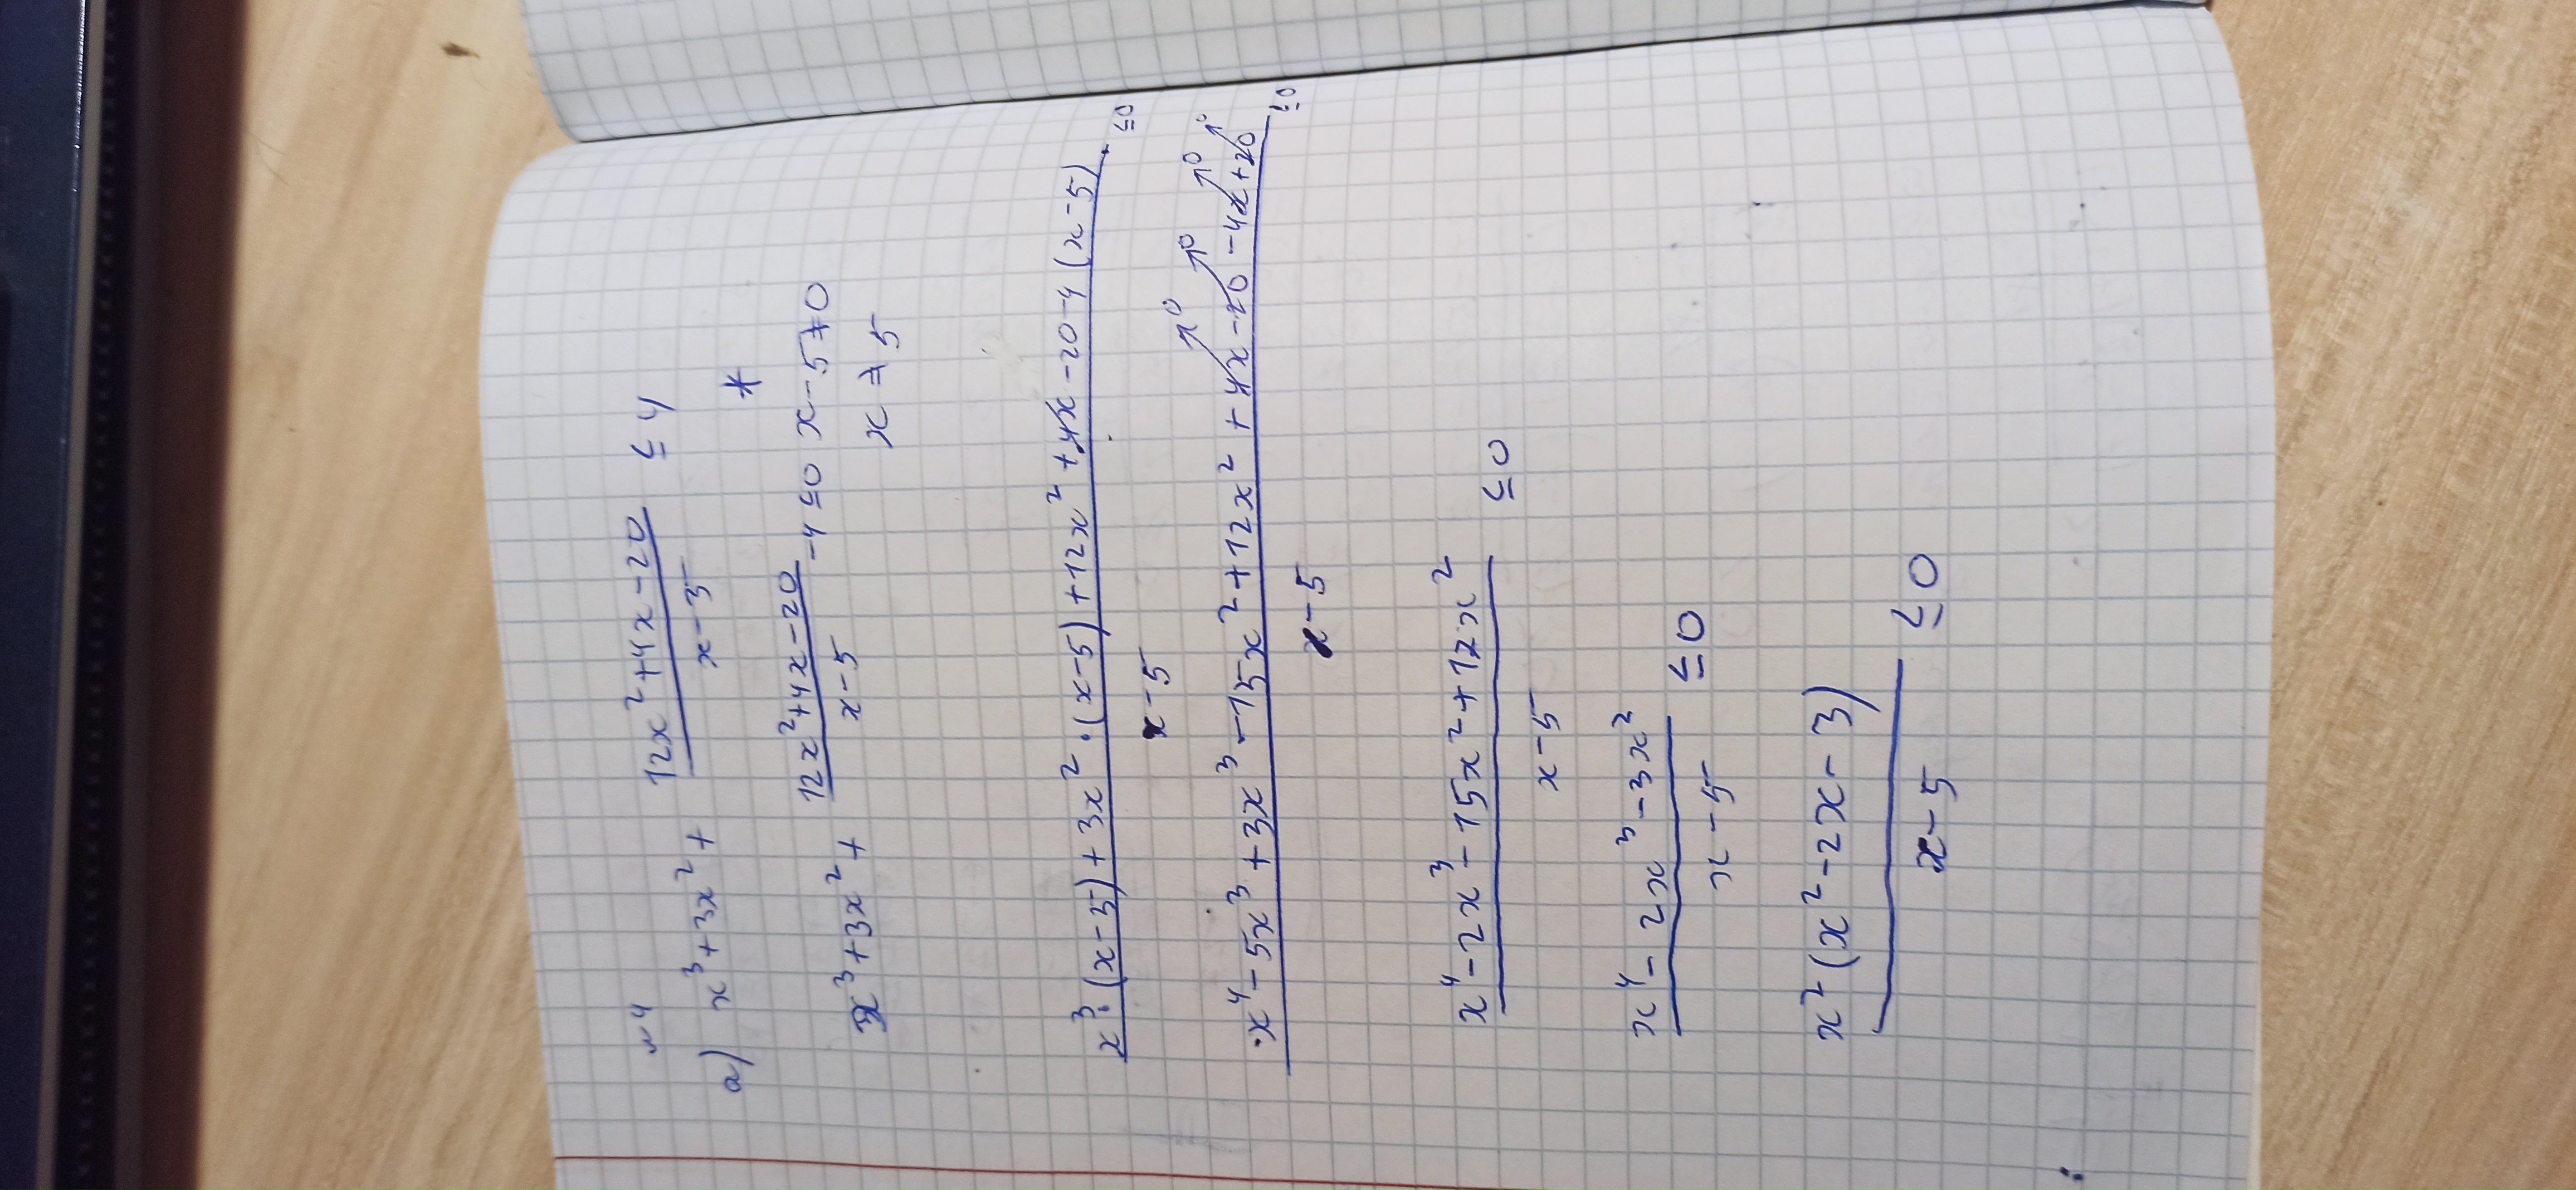 №4
а) x³+3x²+ (12x²+4x-20)/(x-5) ≤ 4
*
x³+3x²+ (12x²+4x-20)/(x-5) -4≤0 x-5≠0
x ≠ 5
(x³·(x-5)+3x²·(x-5)+12x²+4x-20-4(x-5))/(x-5) ≤0
0 0 0 0
(x⁴-5x³+3x³-15x²+12x²+4x-20-4x+20)/(x-5) ≤0
(x⁴-2x³-15x²+12x²)/(x-5) ≤0
(x⁴-2x³-3x²)/(x-5) ≤0
(x²(x²-2x-3))/(x-5) ≤0